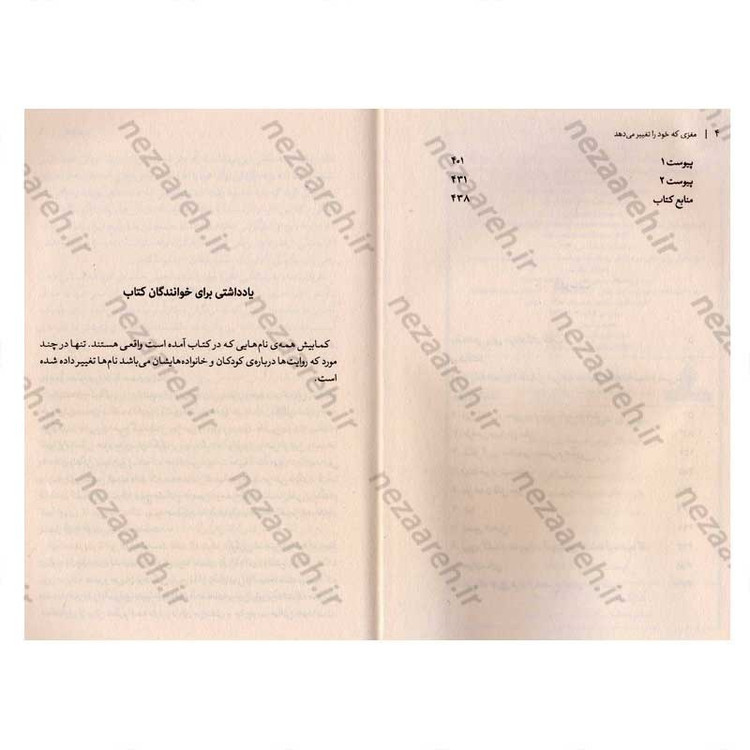 ۴ | مغزی که خود را تغییر می‌دهد
پیوست ۱ ۴۰۱
پیوست ۲ ۴۳۱
منابع کتاب ۴۳۸
یادداشتی برای خوانندگان کتاب
کمابیش همه‌ی نام‌هایی که در کتاب آمده است واقعی هستند. تنها در چند
مورد که روایت‌ها درباره‌ی کودکان و خانواده‌هایشان می‌باشد نام‌ها تغییر داده شده
است.
nezaareh.ir